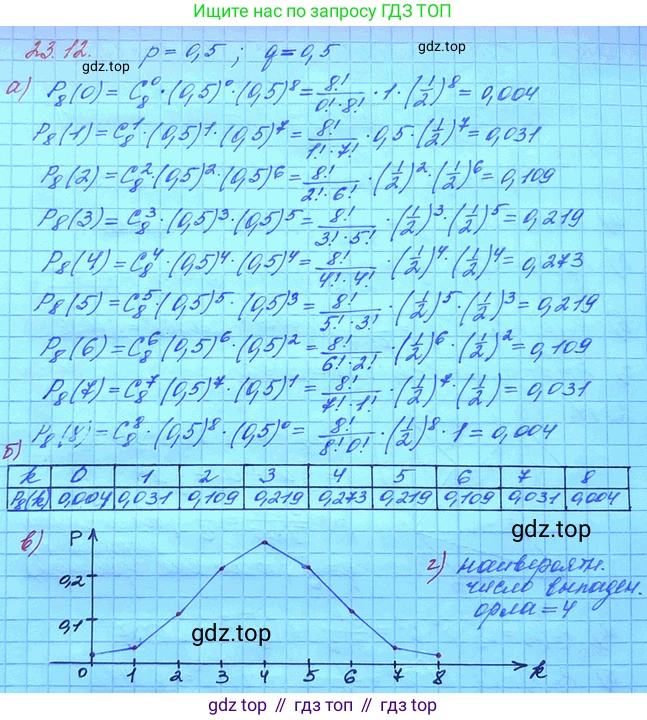 Ищите нас по запросу ГДЗ ТОП
23.12. p = 0,5 ; q = 0,5
gdz.top
а) P₈(0) = C₈⁰ · (0,5)⁰ · (0,5)⁸ = 8!/(0! · 8!) · 1 · (1/2)⁸ = 0,004
P₈(1) = C₈¹ · (0,5)¹ · (0,5)⁷ = 8!/(1! · 7!) · 0,5 · (1/2)⁷ = 0,031
P₈(2) = C₈² · (0,5)² · (0,5)⁶ = 8!/(2! · 6!) · (1/2)² · (1/2)⁶ = 0,109
P₈(3) = C₈³ · (0,5)³ · (0,5)⁵ = 8!/(3! · 5!) · (1/2)³ · (1/2)⁵ = 0,219
P₈(4) = C₈⁴ · (0,5)⁴ · (0,5)⁴ = 8!/(4! · 4!) · (1/2)⁴ · (1/2)⁴ = 0,273
gdz.top
P₈(5) = C₈⁵ · (0,5)⁵ · (0,5)³ = 8!/(5! · 3!) · (1/2)⁵ · (1/2)³ = 0,219
P₈(6) = C₈⁶ (0,5)⁶ · (0,5)² = 8!/(6! · 2!) · (1/2)⁶ · (1/2)² = 0,109
P₈(7) = C₈⁷ (0,5)⁷ · (0,5)¹ = 8!/(7! · 1!) · (1/2)⁷ · (1/2) = 0,031
P₈(8) = C₈⁸ · (0,5)⁸ · (0,5)⁰ = 8!/(8! · 0!) · (1/2)⁸ · 1 = 0,004
б)
k 0 1 2 3 4 5 6 7 8
P₈(k) 0,004 0,031 0,109 0,219 0,273 0,219 0,109 0,031 0,004
gdz.top
в) P
0,2
0,1
0 1 2 3 4 5 6 7 8 k
gdz.top
г) наивероятн.
число выпаден.
орла = 4
gdz.top // gdz.top // gdz.top // gdz.top